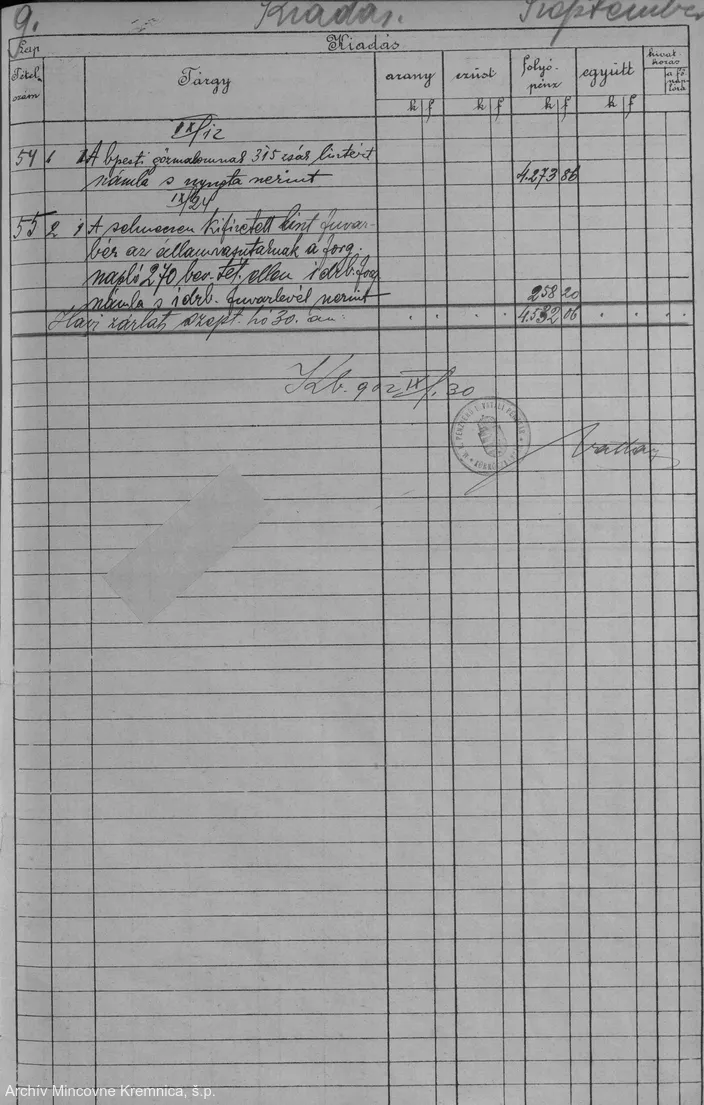 9. Kiadás. September
Lap Kiadás
Tétel szám Tárgy arany ezüst folyó-pénz együtt hivat kozás a fő nap lóra
k f k f k f k f
IX/12
54 1 A bpesti gőzmalomnak 315 zsák lisztért
számla s nyugta szerint 4.273 86
IX/24
55 2 A selmeczen kifizetett liszt fuvar-
bér az államvasutaknak a forg.
napló 270 bev. tét. ellen 1 drb. forg
számla s 1 drb. fuvarlevél szerint 258 20
Havi zárlat szept. hó 30.-án: 4.532 06
Kb. 902 IX/30
Archív Mincovne Kremnica, š.p.